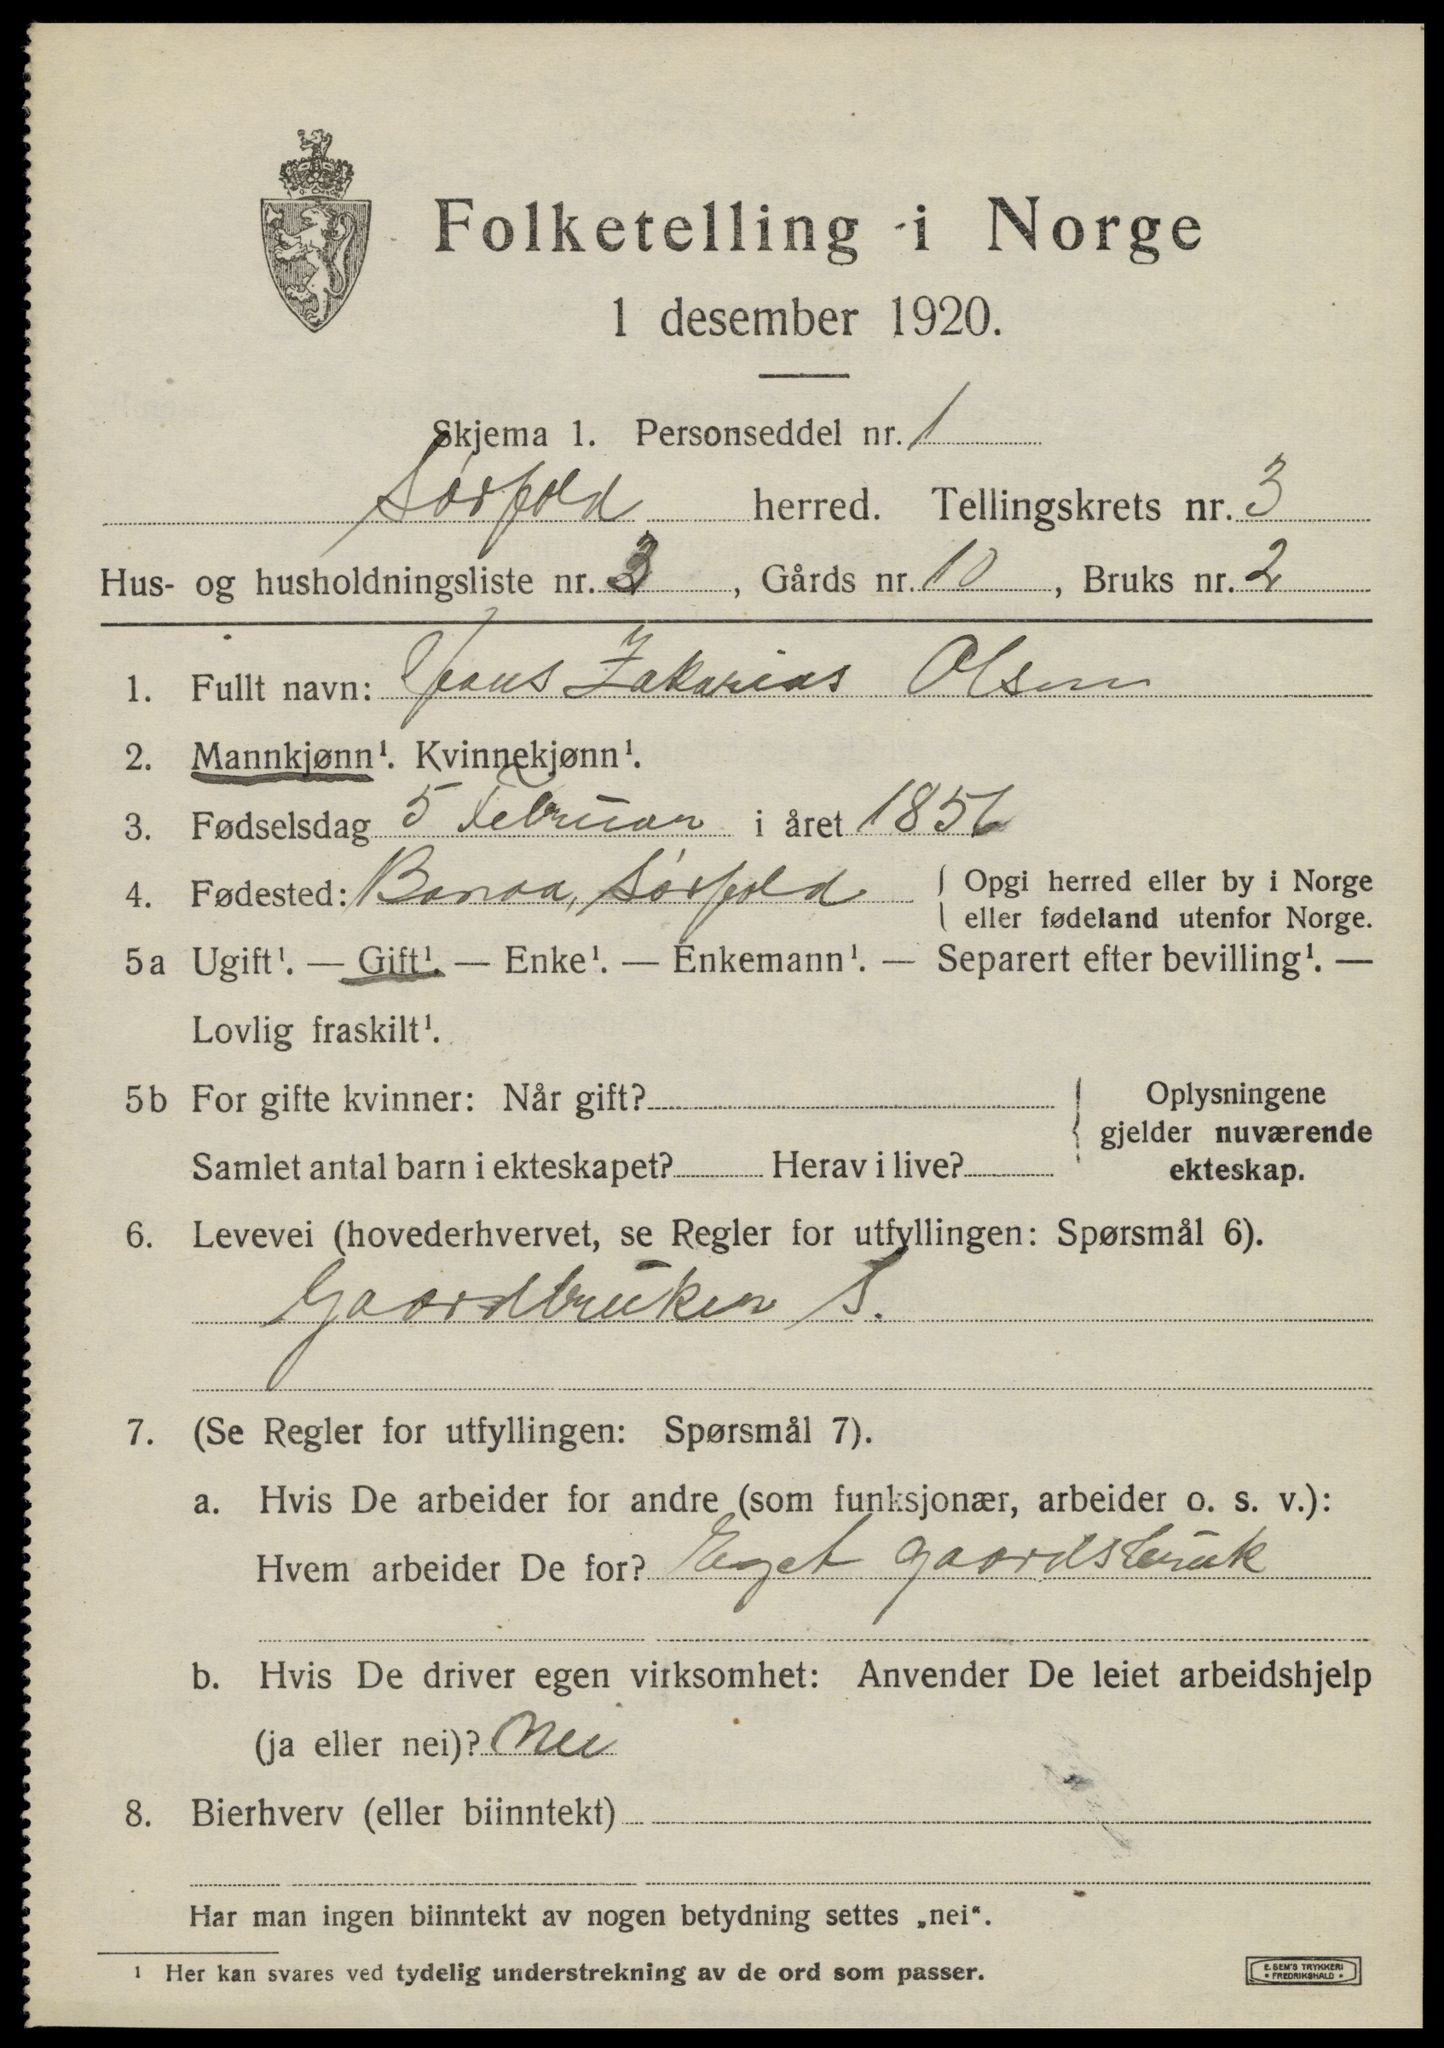 Folketelling i Norge
1 desember 1920.
Skjema 1. Personseddel nr. 1
Sørfold herred. Tellingskrets nr. 3
Hus- og husholdningsliste nr. 3, Gårds nr. 10, Bruks nr. 2
1. Fullt navn: Hans Zakarias Olsen
2. Mannkjønn¹. Kvinnekjønn¹.
3. Fødselsdag 5 Februar i året 1856
4. Fødested: Bonaa, Sørfold { Opgi herred eller by i Norge
eller fødeland utenfor Norge.
5a Ugift¹. — Gift¹. — Enke¹. — Enkemann¹. — Separert efter bevilling¹. —
Lovlig fraskilt¹.
5b For gifte kvinner: Når gift?
Samlet antal barn i ekteskapet? Herav i live?
{ Oplysningene
gjelder nuværende
ekteskap.
6. Levevei (hovederhvervet, se Regler for utfyllingen: Spørsmål 6).
Gaardbruker S.
7. (Se Regler for utfyllingen: Spørsmål 7).
a. Hvis De arbeider for andre (som funksjonær, arbeider o. s. v.):
Hvem arbeider De for? Eget gaardsbruk
b. Hvis De driver egen virksomhet: Anvender De leiet arbeidshjelp
(ja eller nei)? Nei
8. Bierhverv (eller biinntekt)
Har man ingen biinntekt av nogen betydning settes „nei“.
¹ Her kan svares ved tydelig understrekning av de ord som passer.
E. SEM'S TRYKKERI
• FREDRIKSHALD •